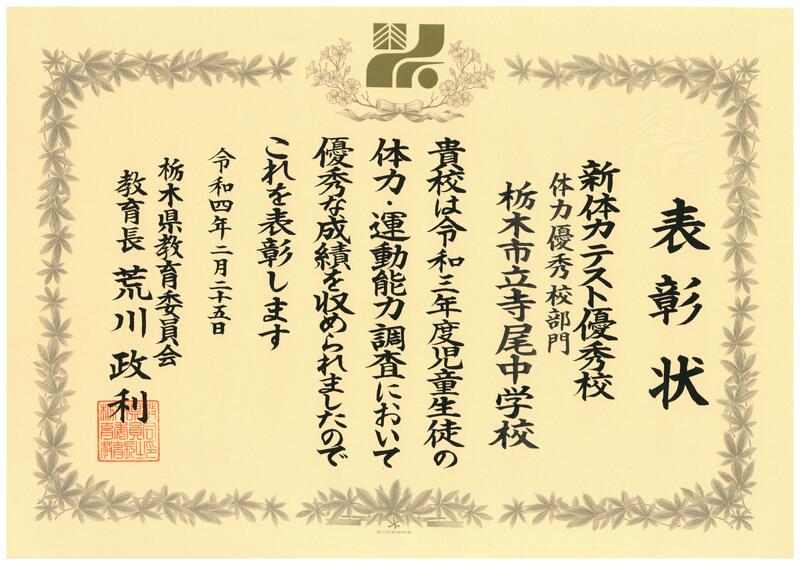 表彰状
新体力テスト優秀校
体力優秀校部門
栃木市立寺尾中学校
貴校は令和三年度児童生徒の
体力・運動能力調査において
優秀な成績を収められましたので
これを表彰します
令和四年二月二十五日
栃木県教育委員会
教育長 荒川政利